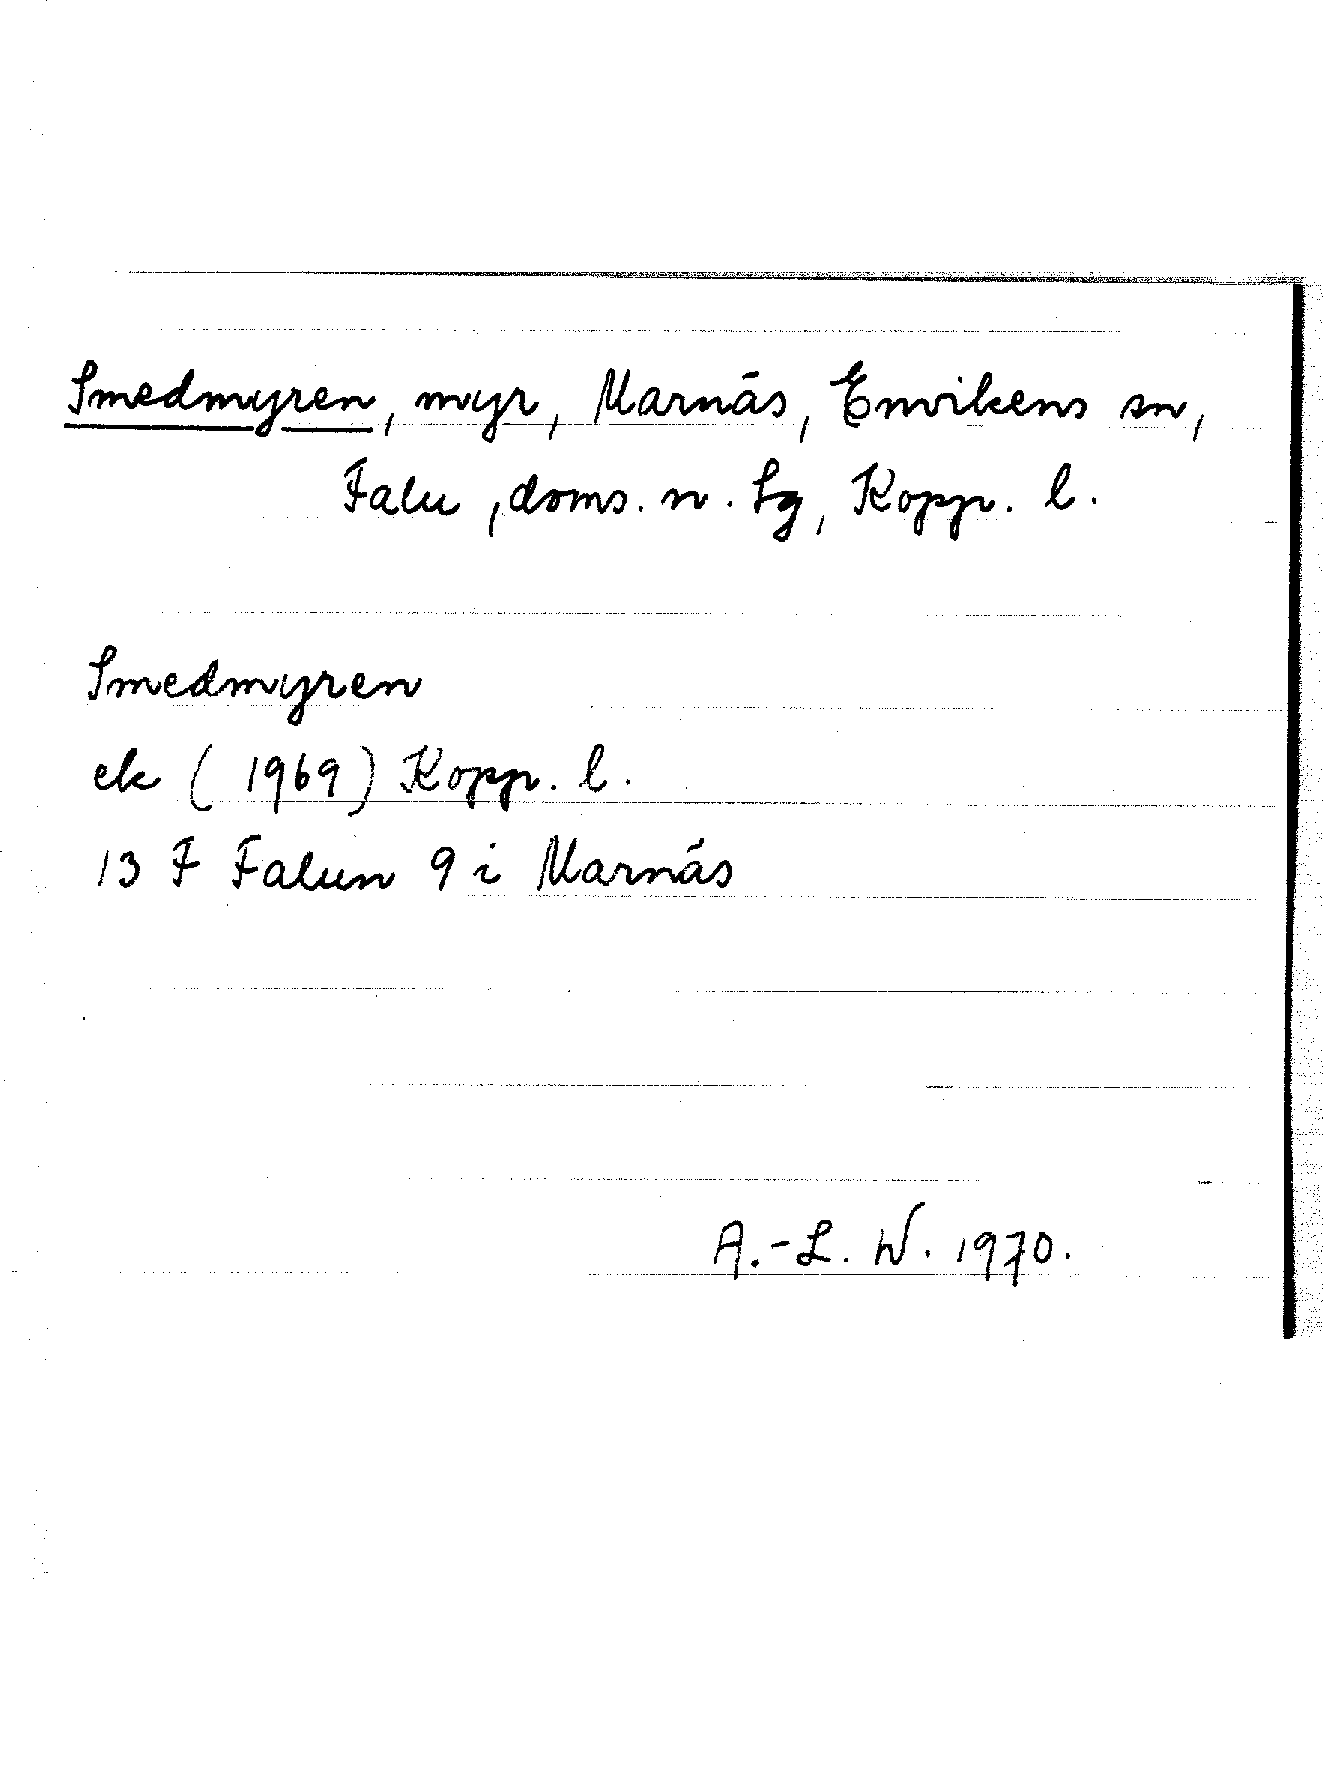 Smedmyren, myr, Marnäs, Envikens sn,
Falu, doms. n. Lg, Kopp. l.
Smedmyren
ek (1969) Kopp. l.
13 F Falun 9 i Marnäs
A.-L. W. 1970.